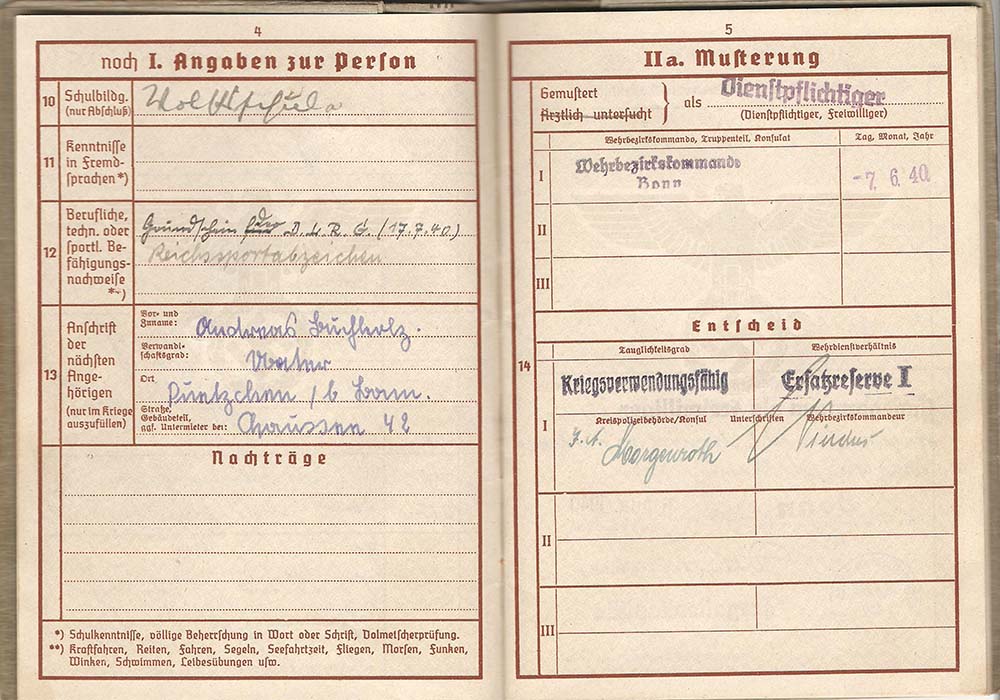 4
noch I. Angaben zur Person
10 Schulbildg. (nur Abschluß)
Volksschule
11 Kenntnisse in Fremdsprachen*)
12 Berufliche, techn. oder sportl. Befähigungsnachweise **)
Grundschein der D. L. R. G. (17.7.40)
Reichssportabzeichen
13 Anschrift der nächsten Angehörigen (nur im Kriege auszufüllen)
Vor- und Zuname: Andreas Buchholz.
Verwandtschaftsgrad: Vater
Ort Puetzchen / b Bonn.
Straße, Gebäudeteil, ggf. Untermieter bei: Chaussee 42
Nachträge
*) Schulkenntnisse, völlige Beherrschung in Wort oder Schrift, Dolmetscherprüfung.
**) Kraftfahren, Reiten, Fahren, Segeln, Seefahrtzeit, Fliegen, Morsen, Funken,
Winken, Schwimmen, Leibesübungen usw.
5
IIa. Musterung
Gemustert
Ärztlich untersucht
als Dienstpflichtiger
(Dienstpflichtiger, Freiwilliger)
Wehrbezirkskommando, Truppenteil, Konsulat
Tag, Monat, Jahr
I Wehrbezirkskommando
Bonn
-7. 6. 40
II
III
Entscheid
14
Tauglichkeitsgrad
Wehrdienstverhältnis
Kriegsverwendungsfähig
Ersatzreserve I
Kreispolizeibehörde/Konsul Unterschriften Wehrbezirkskommandeur
I
Morgenroth
II
III